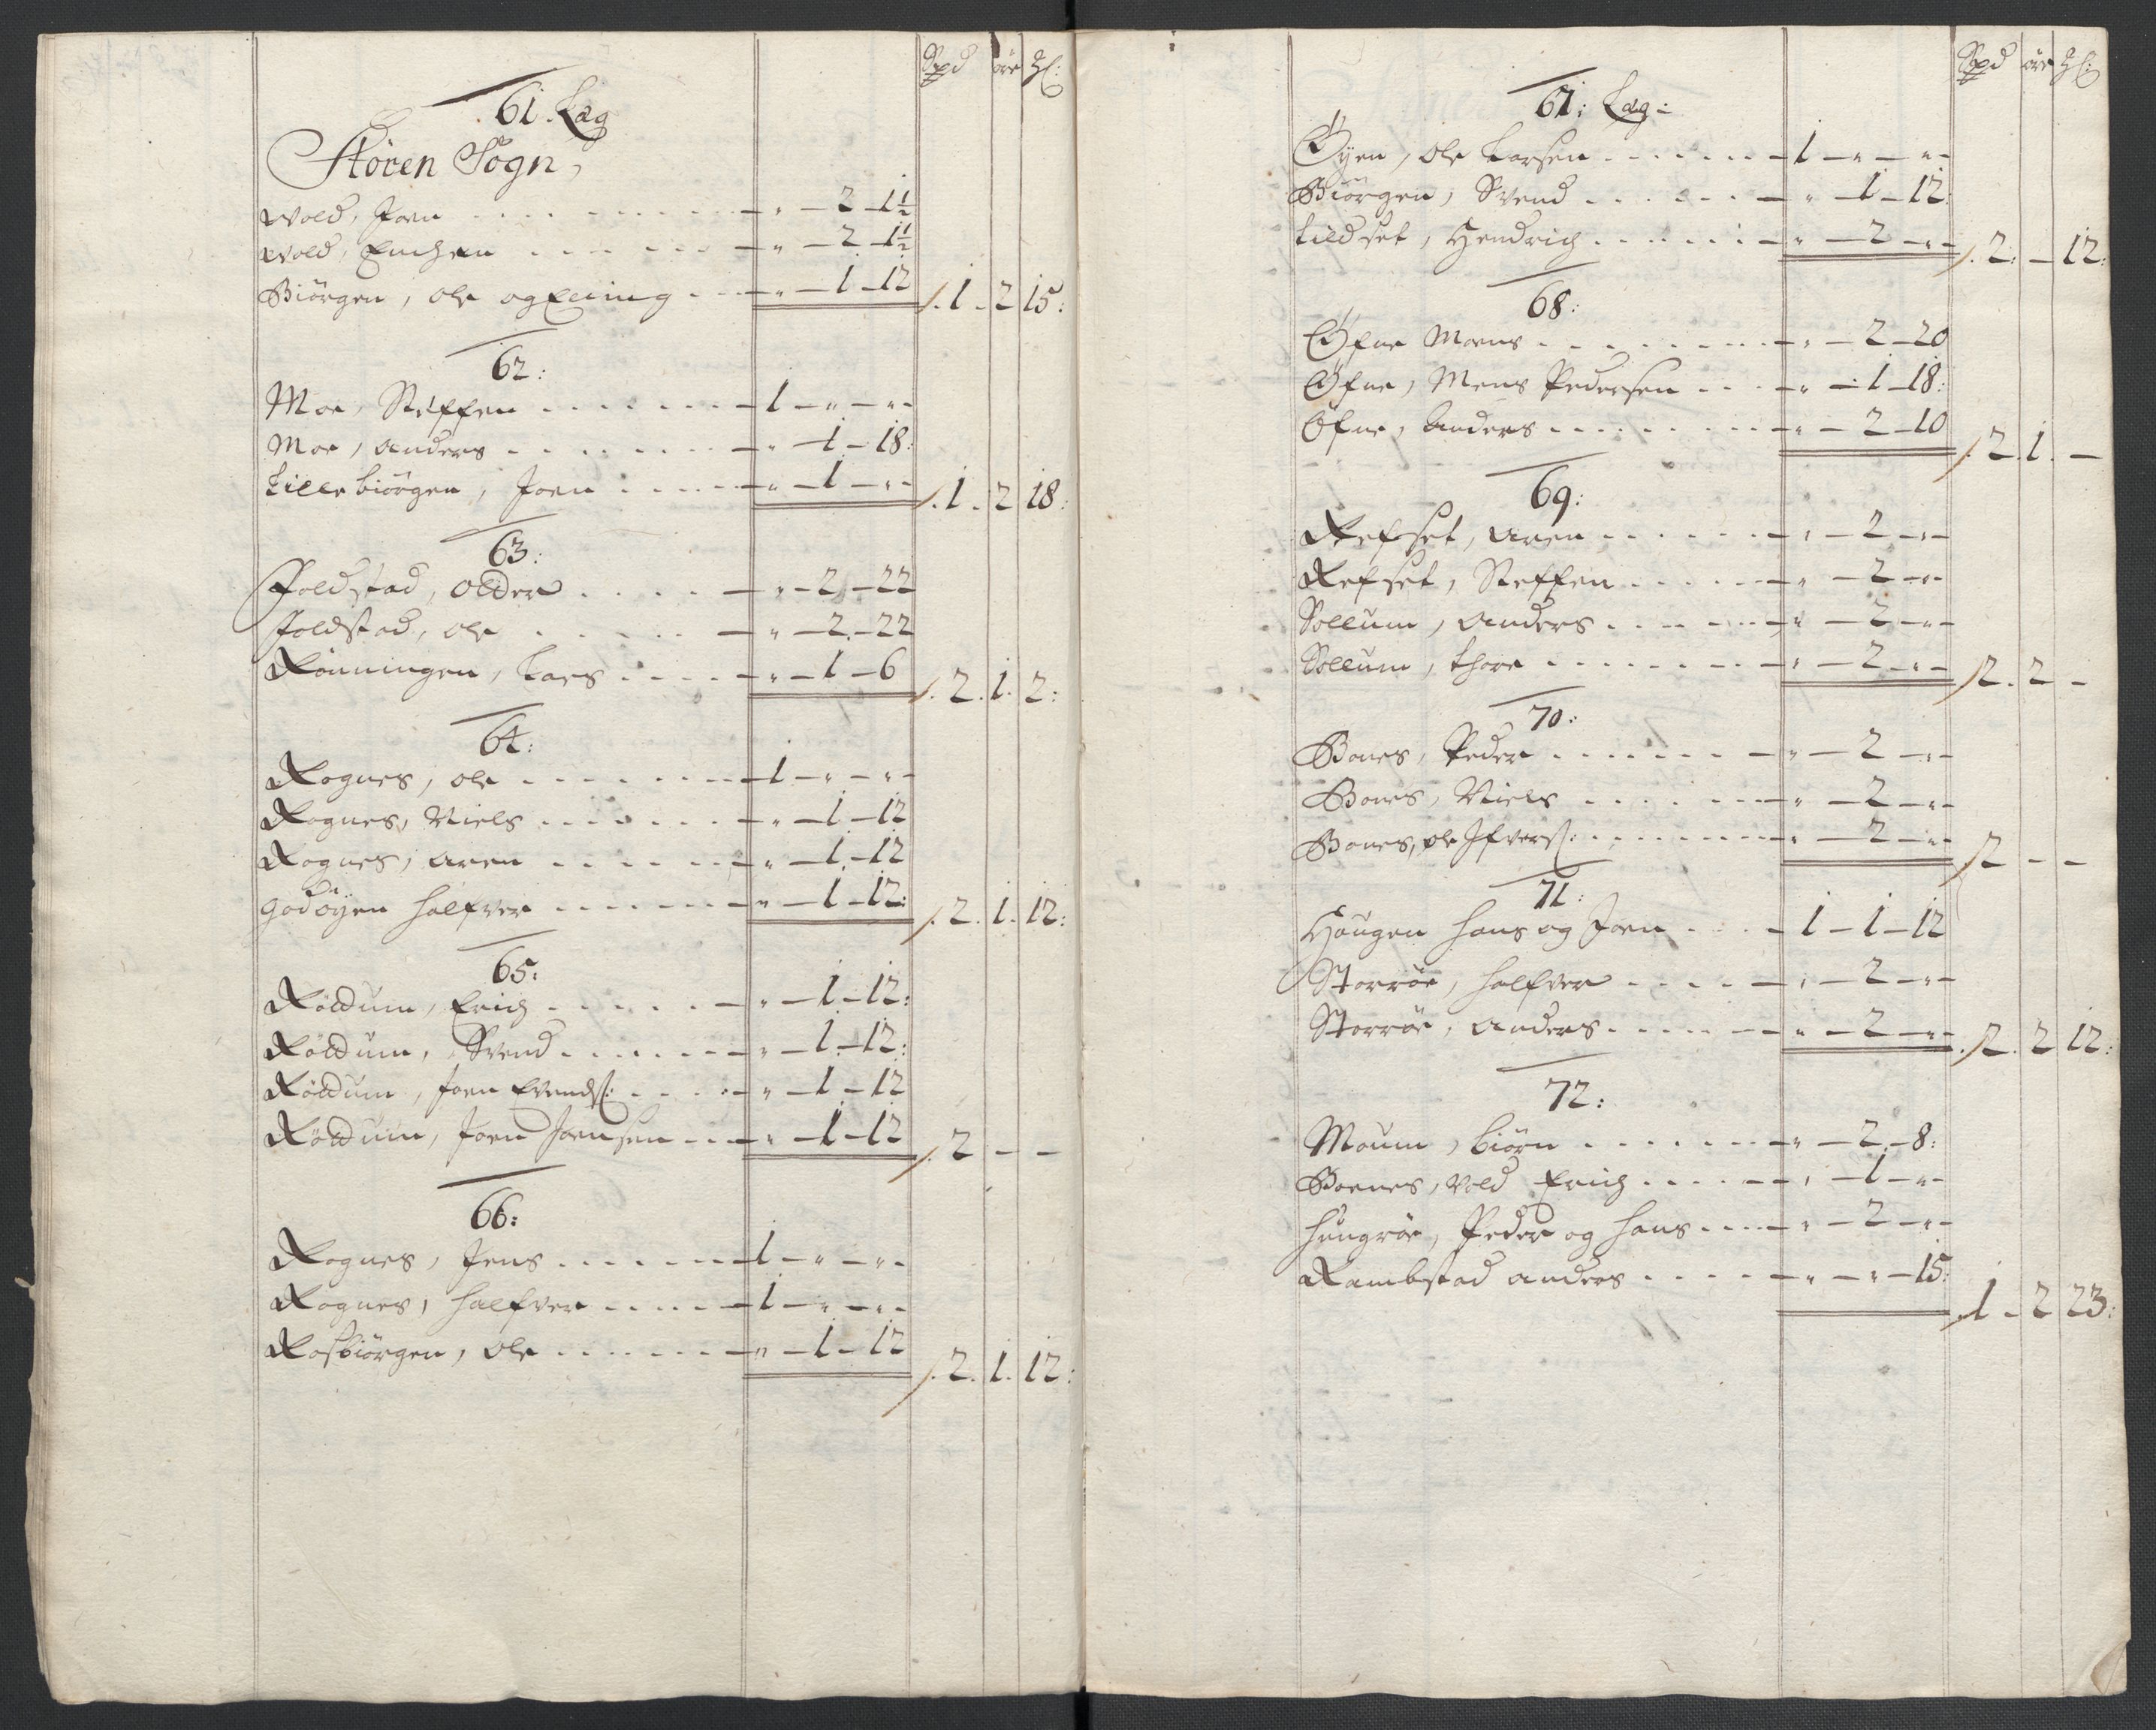 Spd øre ꝫ:
61. Læg
Støren Sogn,
Wold, Joen . . . . . . . . „ — 2 — 1½
Wold, Enchen . . . . . . „ — 2 — 1½
Biörgen, Ole og Elling . . „ — 1 — 12 1. 2 15:
62:
Moe, Steffen . . . . . . . 1 — „ — „
Moe, Anders . . . . . . . „ — 1 — 18:
Lillebiörgen, Joen . . . . . „ — 1 — „ 1. 2 18:
63:
Foldstad, Olduer . . . . „ — 2 — 22
Foldstad, Ole . . . . . . „ — 2 — 22
Rönningen, Lars . . . . . „ — 1 — 6 2. 1. 2:
64:
Rognes, Ole . . . . . . . 1 — „ — „
Rognes, Niels . . . . . . . „ — 1 — 12
Rognes, Aren . . . . . . „ — 1 — 12
Godöyen Halfver . . . . . . „ — 1 — 12: 2. 1. 12:
65:
Röldum, Erich . . . . . . „ — 1 — 12:
Röldum, Svend . . . . . . . „ — 1 — 12:
Röldum, Joen Evends: . . . . „ — 1 — 12
Röldum, Joen Joensen . . . „ — 1 — 12 2 — —
66:
Rognes, Jens . . . . . . . 1 — „ — „
Rognes, Halfver . . . . . 1 — „ — „
Rosbiörgen, Ole . . . . . . „ — 1 — 12 2. 1. 12:
Spd øre ꝫ:
67: Læg:
Öyen, Ole Larsen . . . . . . 1 — „ — „
Biörgen, Svend . . . . . . „ — 1 — 12:
Lildset, Hendrich . . . . . . „ — 2 — „ 2: — 12:
68:
Öfne Moens . . . . . . . . „ — 2 — 20
Öfne, Mens Pedersen . . . „ — 1 — 18:
Öfne, Anders . . . . . . . . „ — 2 — 10 2. 1. —
69:
Refset, Aren . . . . . . . „ — 2 — „
Refset, Steffen . . . . . . „ — 2 — „
Sollum, Anders . . . . . . „ — 2 — „
Sollum, Thore . . . . . . . . „ — 2 — „ 2. 2 —
70:
Bones, Peder . . . . . . . „ — 2 — „
Bones, Niels . . . . . . . „ — 2 — „
Bones, Ole Ifvers: . . . . . . . „ — 2 — „ 2 — —
71:
Haugen Hans og Joen . . . 1 — 1 — 12
Storröe, Halfver . . . . . „ — 2 — „
Storröe, Anders . . . . . . „ — 2 — „ 2. 2 12:
72:
Moum, Biörn . . . . . . . „ — 2 — 8:
Boenes, Vold Erich . . . . . „ — 1 — „
Hungröe, Peder og Hans . . . . „ — 2 — „
Rambstad Anders . . . . . „ — „ — 15: 1 — 2 23: